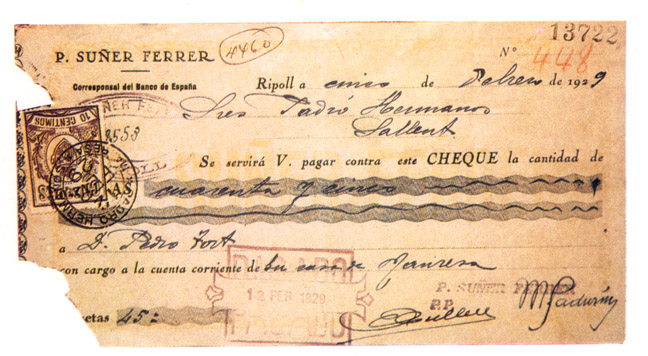 13722
P. SUÑER FERRER 4460 Nº 448
Corresponsal del Banco de España
Ripoll a cinco de Febrero de 1929
Sres Padró Hermanos
Sallent
10 CENTIMOS
8558
Se servirá V. pagar contra este CHEQUE la cantidad de
cuarenta y cinco
a D. Pedro Fort
con cargo a la cuenta corriente de su casa de Manresa
PAGADO
12 FEB 1929
PAGADO
P. SUÑER FERRER
P.P.
etas 45: